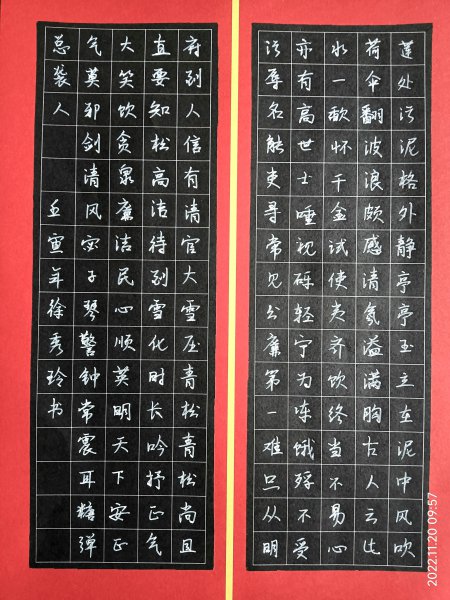 莲处污泥格外静亭亭玉立在泥中风吹
荷伞翻波浪颇感清氛溢满胸古人云此
水一歃怀千金试使夷齐饮终当不易心
亦有高世士唾视砾轻宁为冻饿殍不受
污辱名能吏寻常见公廉第一难只从明
府别人信有清官大雪压青松青松尚且
直要知松高洁待到雪化时长吟抒正气
大笑饮贪泉廉洁民心顺英明天下安正
气莫邪剑清风宓子琴警钟常震耳糖弹
总袭人 壬寅年徐秀玲书
2022.11.20 09:57